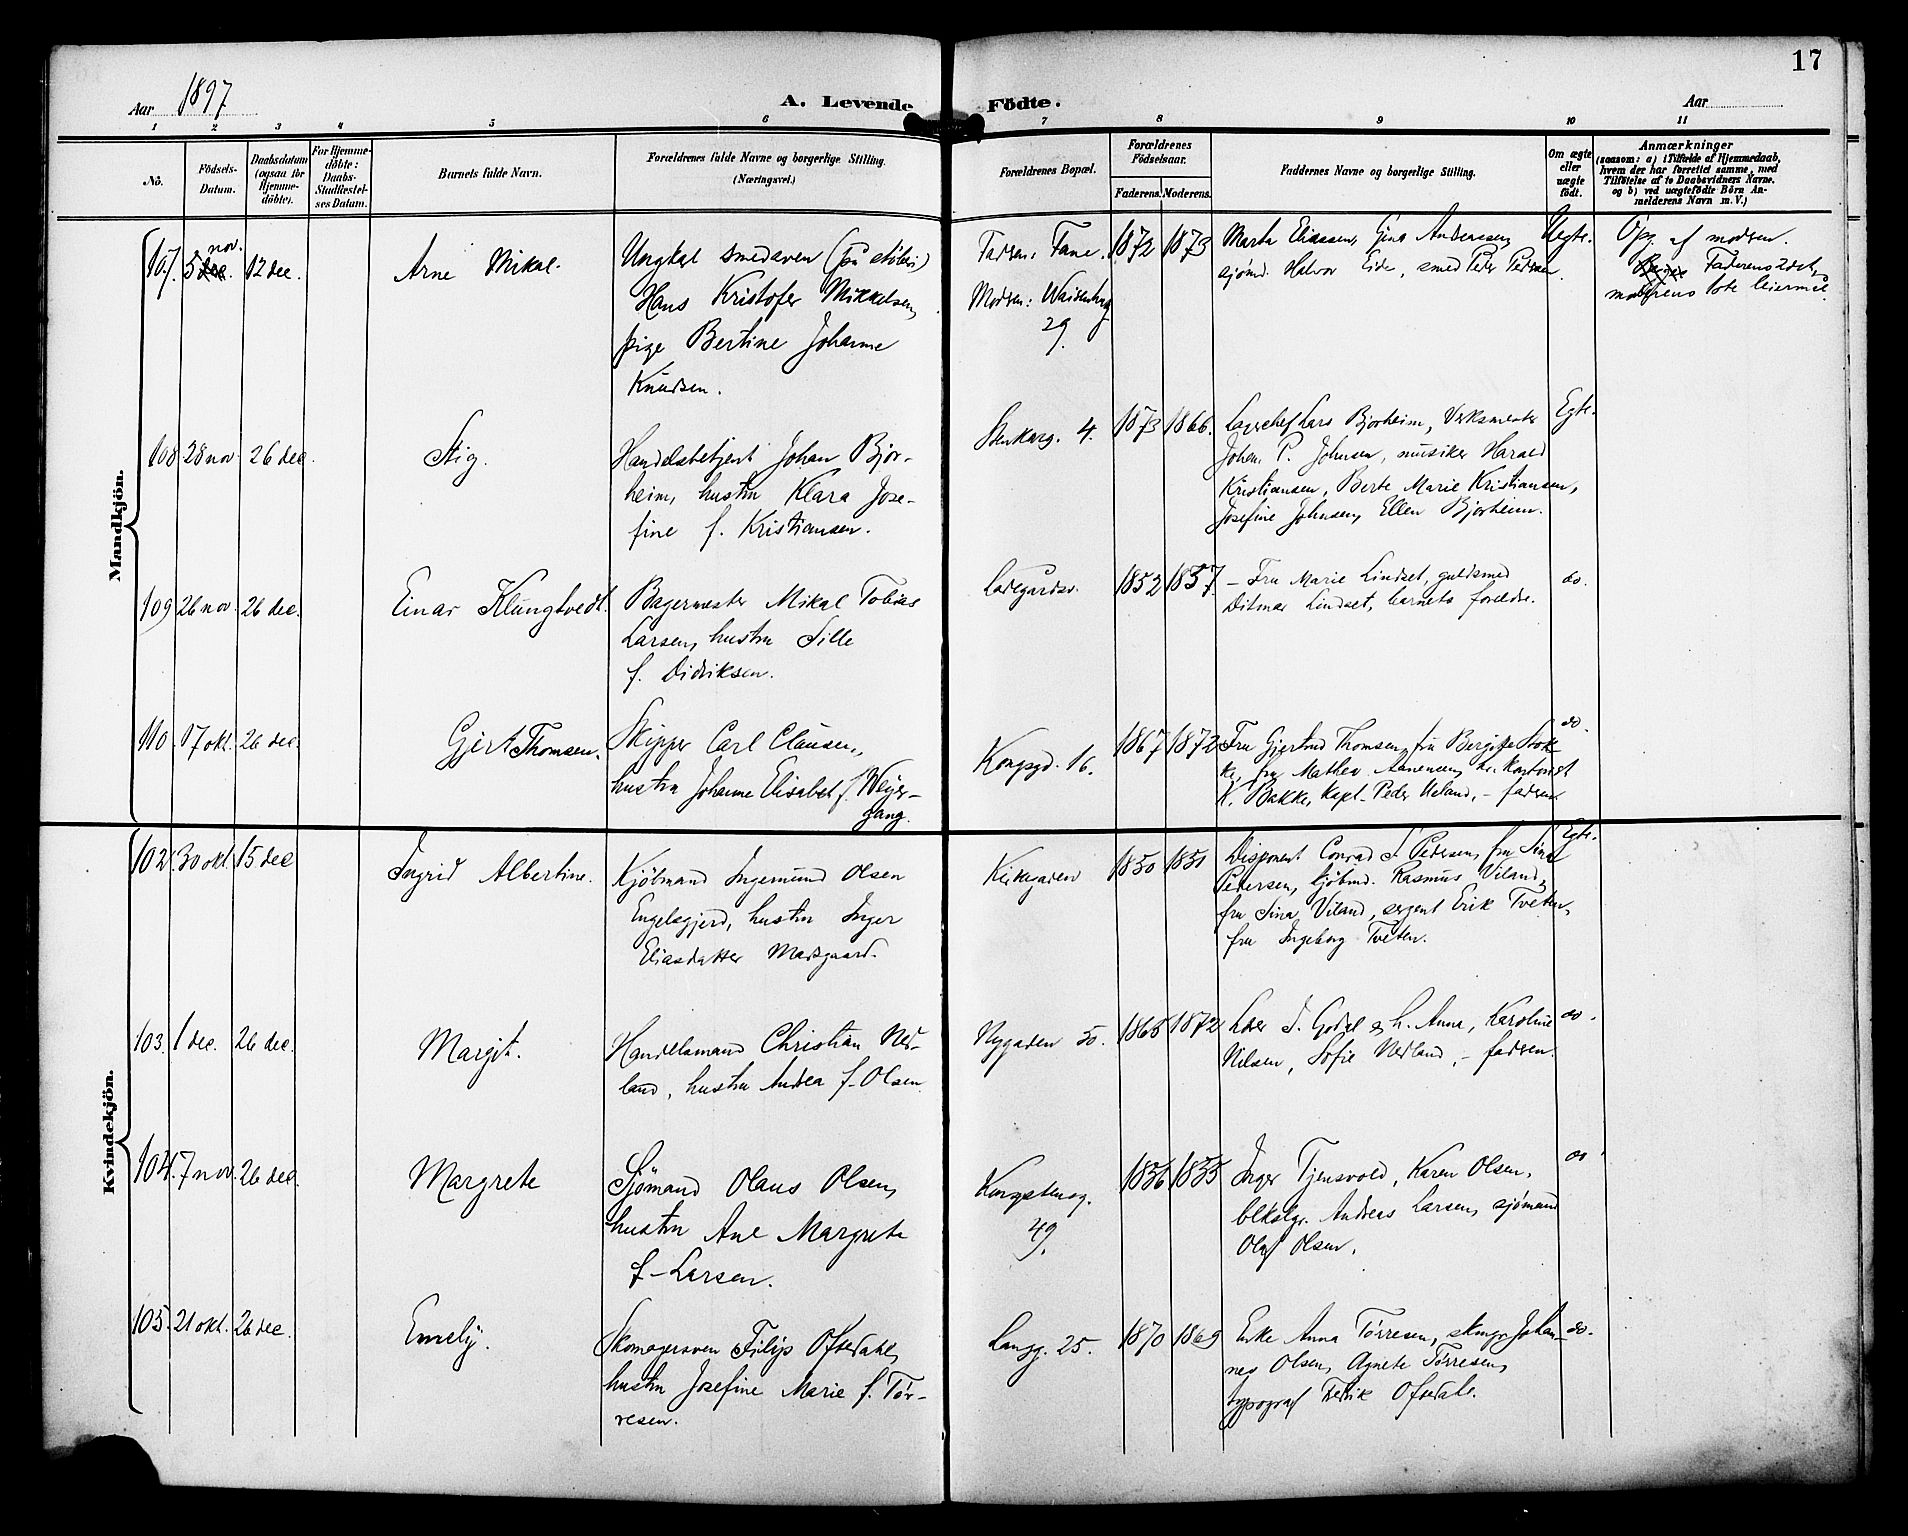 17
Aar 1897
A. Levende Födte.
Aar
1 2 3 4 5 6 7 8 9 10 11
No.
Födsels-Datum.
Daabsdatum (ogsaa for Hjemme-döbte).
For Hjemme-döbte: Daabs-Stadfæstel-ses Datum.
Barnets fulde Navn.
Forældrenes fulde Navne og borgerlige Stilling. (Næringsvei.)
Forældrenes Bopæl.
Forældrenes Födselsaar.
Faderens. Moderens.
Faddernes Navne og borgerlige Stilling.
Om ægte eller uægte födt.
Anmærkninger
(saasom: a) i Tilfælde af Hjemmedaab,
hvem der har forrettet samme, med
Tilföielse af to Daabsvidners Navne.
og b) ved uægtefödte Börn An-
melderens Navn m. V.)
Mandkjön.
107. 5 dec. nov. 12 dec. Arne Mikal.
Ungkal smedsven
Hans Kristofer Mikkelsen,
pige Bertine Johanne
Knudsen.
Fadren: Fane.
Modren:
29.
1872 1873
Marta Eliassen, Gina Andersen,
sjømd. Halvor Eide, smed Peder Pedersen
Uegte.
Opg. af modren.
Faderens 2det,
moderens 1ste leiermål.
108 28 nov. 26 dec. Stig.
Handelsbetjent Johan Bjor-
heim, hustru Klara Jose-
fine f. Kristiansen.
Stenkarg. 4. 1873 1866.
Lagerchef Lars Bjorheim, Verksmester
Johan P. Johnsen, musiker Harald
Kristiansen, Berte Marie Kristiansen,
Josefine Johnsen, Ellen Bjorheim.
Egte.
109 26 nov. 26 dec. Einar Klungtvedt.
Bagermester Mikal Tobias
Larsen, hustru Sille
f. Didriksen.
Ladegårdsv. 1852 1857.
- Fru Marie Lindset, guldsmed
Ditmar Lindset, barnets forældre.
do.
110. 17 okt. 26 dec. Gjert Thomsen.
Skipper Carl Clausen,
hustru Johanne Elisabet f. Weyer-
gang.
Kongsgd. 16. 1867 1872
Fru Gjertrud Thomsen, fru Bergitte Stok-
ke, fru Mathea Aanensen,
K. Bakke, Kapt. Peder Ueland, - fadren.
do.
Kvindekjön.
102. 30 okt. 15 dec Ingrid Albertine.
Kjöbmand Ingemund Olsen
Engelsgjerd, hustru Inger
Eliasdatter Madsgaard.
Kirkegaden 1850 1851
Disponent Conrad S Pedersen, fru Sina
Pedersen, kjöbmd. Rasmus Viland,
fru Sina Viland, sergent Erik Tveten,
fru Ingeborg Tveten.
Egte.
103. 1 dec. 26 dec. Margit.
Handelsmand Christian Ned-
land, hustru Andrea f. Olsen
Nygaden 50. 1865 1872
Lder S. Godal & h. Anna, Karoline
Nilsen, Sofie Nedland, - fadren.
do.
104. 7 nov. 26 dec. Margrete
Sjømand Olaus Olsen,
hustru Ane Margrete
f. Larsen.
Kongstensg.
49.
1856 1855
Inger Tjensvold, Karen Olsen,
blkslgr. Andreas Larsen, sjømand
Olaf Olsen.
do.
105. 21 okt. 26 dec. Emely.
Skomagersven Filip Oftedahl,
hustru Josefine Marie f. Tør-
resen.
Langg. 25. 1870 1869
Enke Anna Tørresen, skmgr. Johan-
nes Olsen, Agnete Tørresen,
typograf Fredrik Oftedahl.
do.